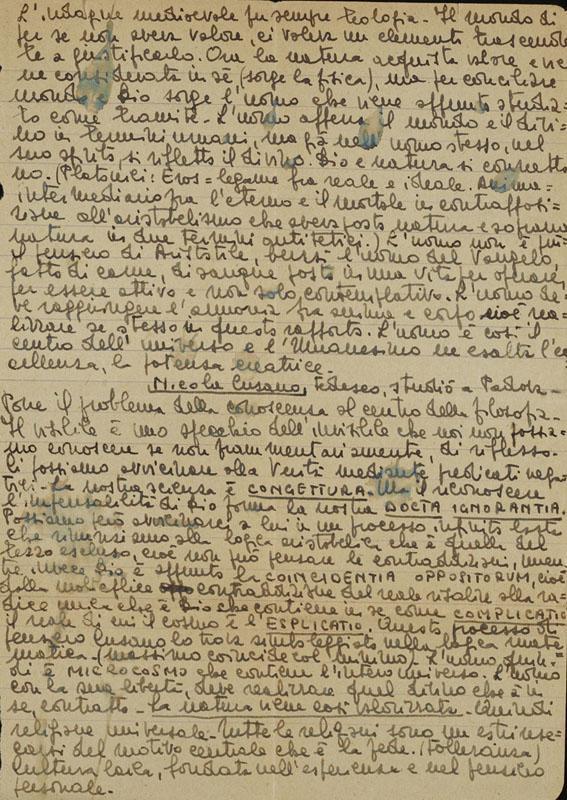 L'indagine medioevale fu sempre teologia - Il mondo di
per se non aveva valore, ci voleva un elemento trascenden
te a giustificarlo. Ora la natura acquista valore e vie
ne considerata in sé, (sorge la fisica), ma per conciliare
mondo e Dio sorge l'uomo che viene assunto e studia
to come tramite - L'uomo afferra il mondo e il divi
no in termini umani, ma già nell'uomo stesso, nel
suo spirito, si riflette il divino. Dio e natura si connetto
no. (Platonici: Eros = legame fra reale e ideale. Anima =
intermediario fra l'eterno e il mortale in contrapposi=
zione all'aristotelismo che aveva posto natura e sopranna
natura in due termini antitetici.) L'uomo non è più
il pensiero di Aristotile, bensì l'uomo del Vangelo,
fatto di carne, di sangue posto in una vita per operare,
per essere attivo e non solo contemplativo. L'uomo de=
ve raggiungere l'armonia fra anima e corpo cioè rea=
lizzare se stesso in questo rapporto. L'uomo è così il
centro dell'universo e l'Umanesimo ne esalta l'ec
cellenza, la potenza creatrice.
Nicola Cusano, tedesco, studiò a Padova -
Pone il problema della conoscenza al centro della filosofia -
Il visibile è uno specchio dell'invisibile che noi non possia=
mo conoscere se non frammentariamente, di riflesso.
Ci possiamo avvicinare alla Verità mediante predicati nega
tivi - La nostra scienza è CONGETTURA. Ma il riconoscere
l'impensabilità di Dio forma la nostra DOCTA IGNORANTIA.
Possiamo però avvicinarci a lui in un processo infinito
che rinunziamo alla logica aristotelica che è quella del
terzo escluso, cioè non può pensare la contraddizione, men
tre invece Dio è appunto la COINCIDENTIA OPPOSITORUM, cioè
dalla molteplice contraddizione del reale risalire alla ra=
dice unica che è Dio che contiene in se come COMPLICATIO
il reale di cui il cosmo è l'ESPLICATIO. Questo processo di
pensiero Cusano lo trova simboleggiato nella logica mate
matica - (massimo coincide col minimo) - L'uomo quin=
di è MICROCOSMO che contiene l'intero universo. L'uomo
con la sua libertà, deve realizzare quel divino che è in
se, contratto - La natura viene così valorizzata - Quindi
religione universale - Tutte le religioni sono un estrinse=
carsi del motivo centrale che è la fede. (Tolleranza)
Cultura laica, fondata nell'esperienza e nel pensiero
personale -